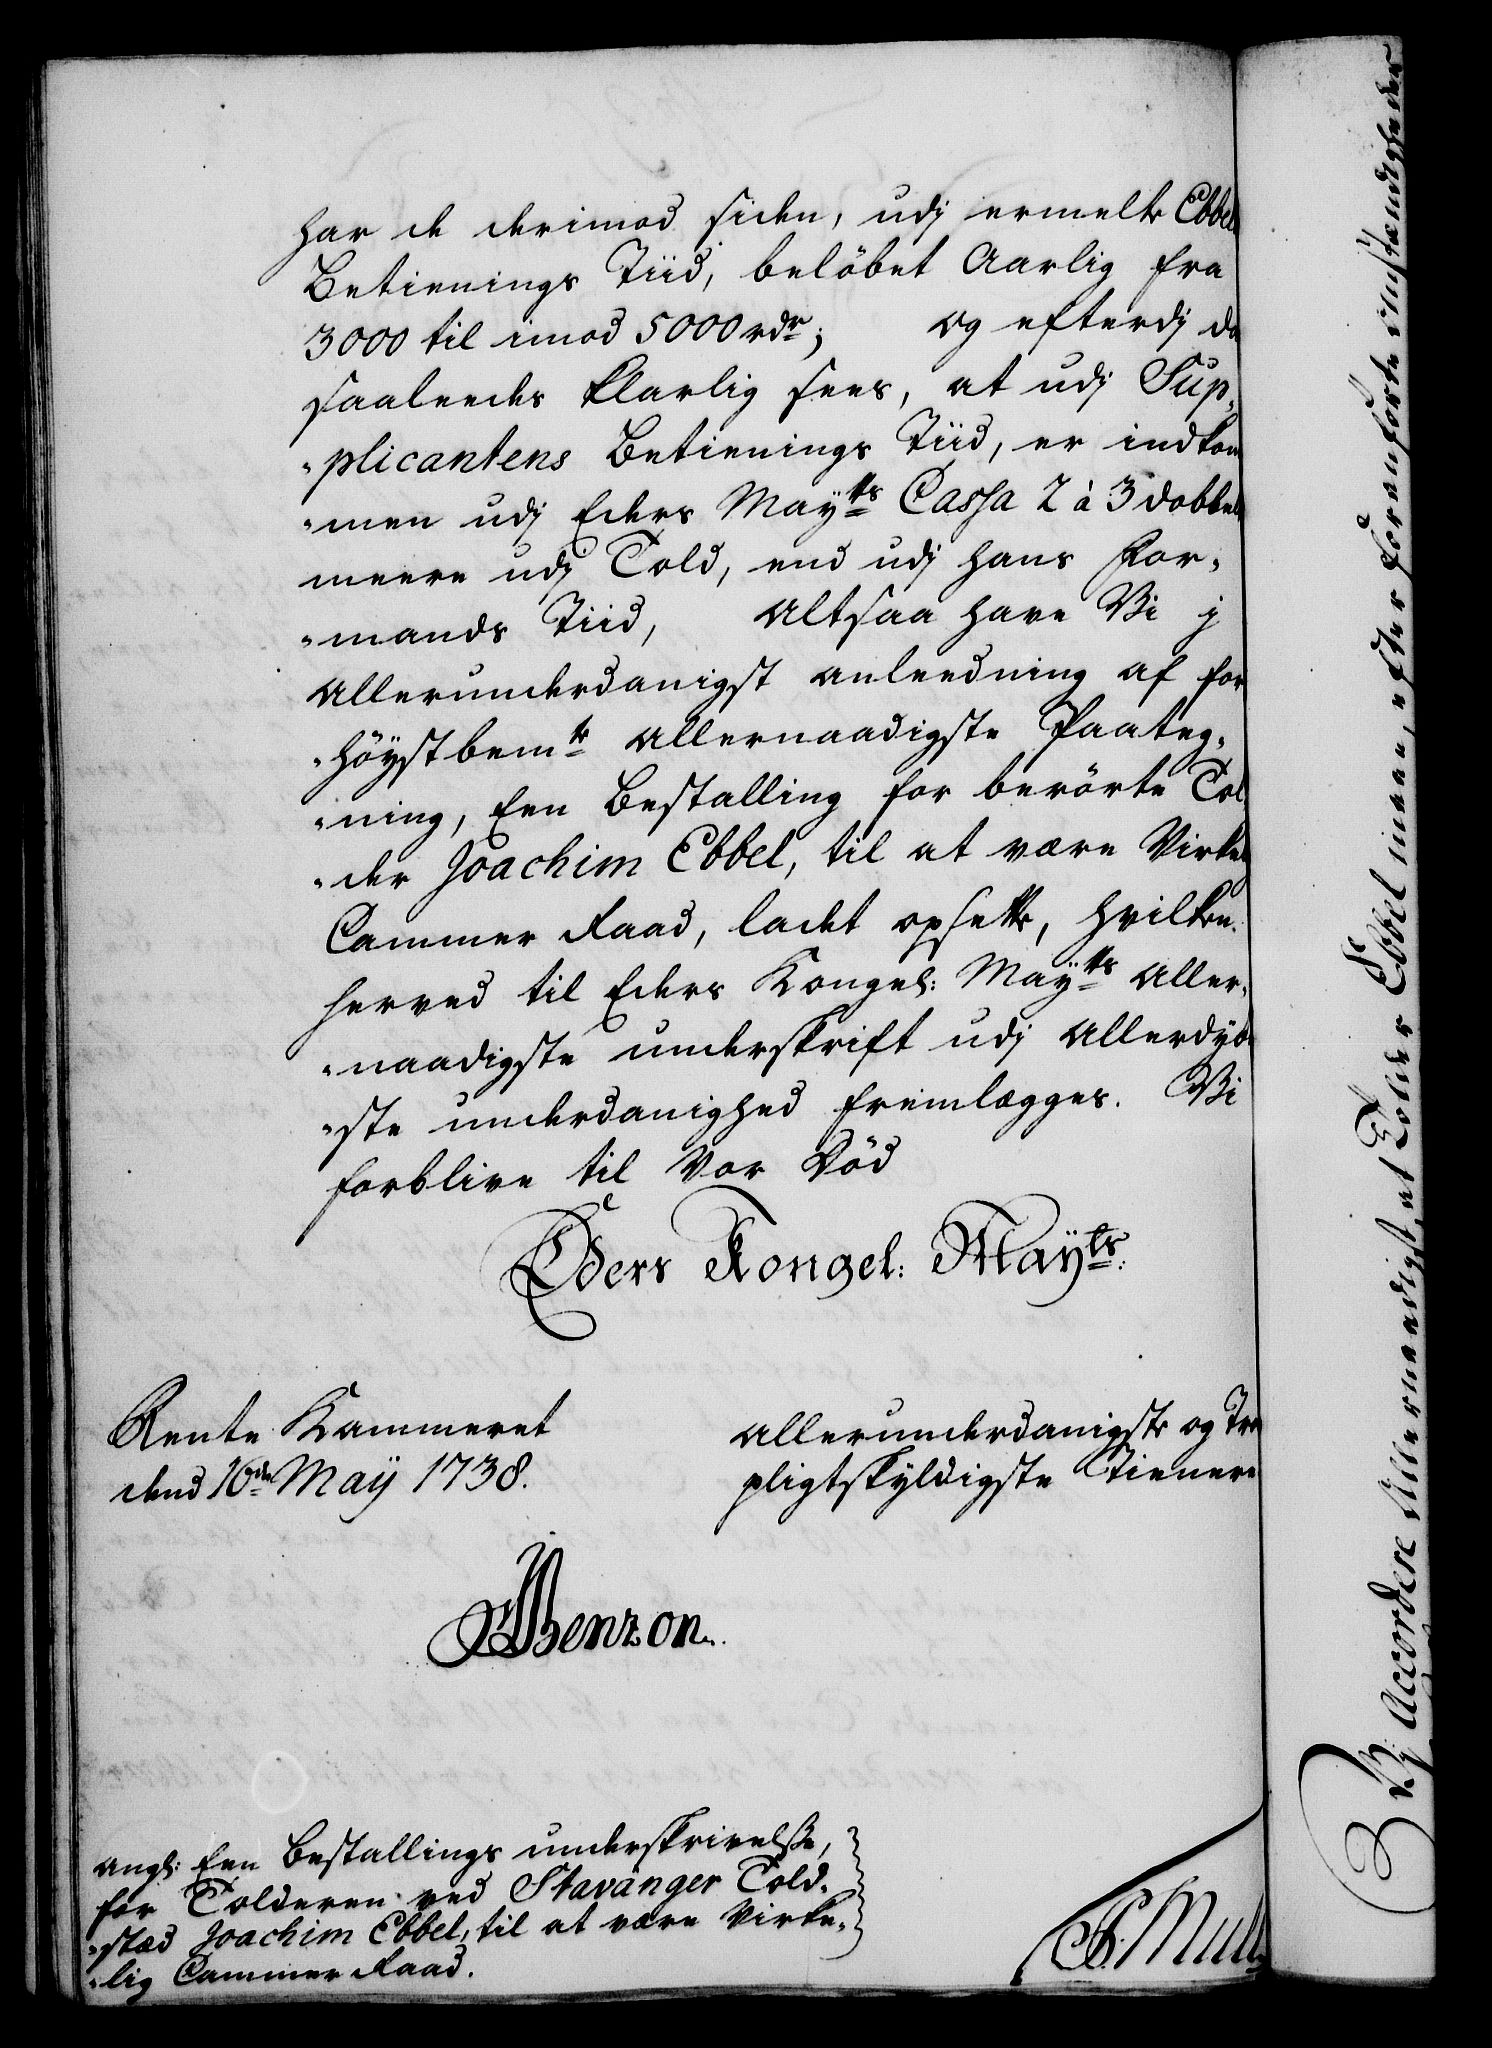 har de derimod siden, udj ermelte Ebbels
Betienings Tiid, belöbet Aarlig fra
3000 til imod 5000 rdr; og efterdj da
saaleedes klarlig sees, at udj Sup-
-plicantens Betienings Tiid, er indkom
-men udj Eders Maytts Cassa 2 à 3 dobbelt
meere udj Told, end udj hans For-
-mands Tiid, Altsaa have Vi j
Allerunderdanigst anleedning af for
-höystbemte Allernaadigste Paateg-
-ning, Een Bestalling for berörte Tol-
-der Joachim Ebbel, til at være Virkel
Cammer Raad, ladet opsette, hvilken
herved til Eders Kongel: Maytts Aller-
-naadigste underskrift udj Allerdyb-
-ste underdanighed fremlægges. Vi
forblive til Vor Död
Eders Kongel: Mayts:
Rente Kammeret
dend 16de May 1738.
Allerunderdanigste og Troe
pligtskyldigste Tienere
Benzon.
angl: Een Bestallings underskrivelsse,
for Tolderen ved Stavanger Told-
-stæd Joachim Ebbel, til at være Virke-
-lig Cammer Raad.
F: Müll
Vj Accordere Allernaadigst, at Tolder Ebbel maae, efter foranförte Omstændigheder